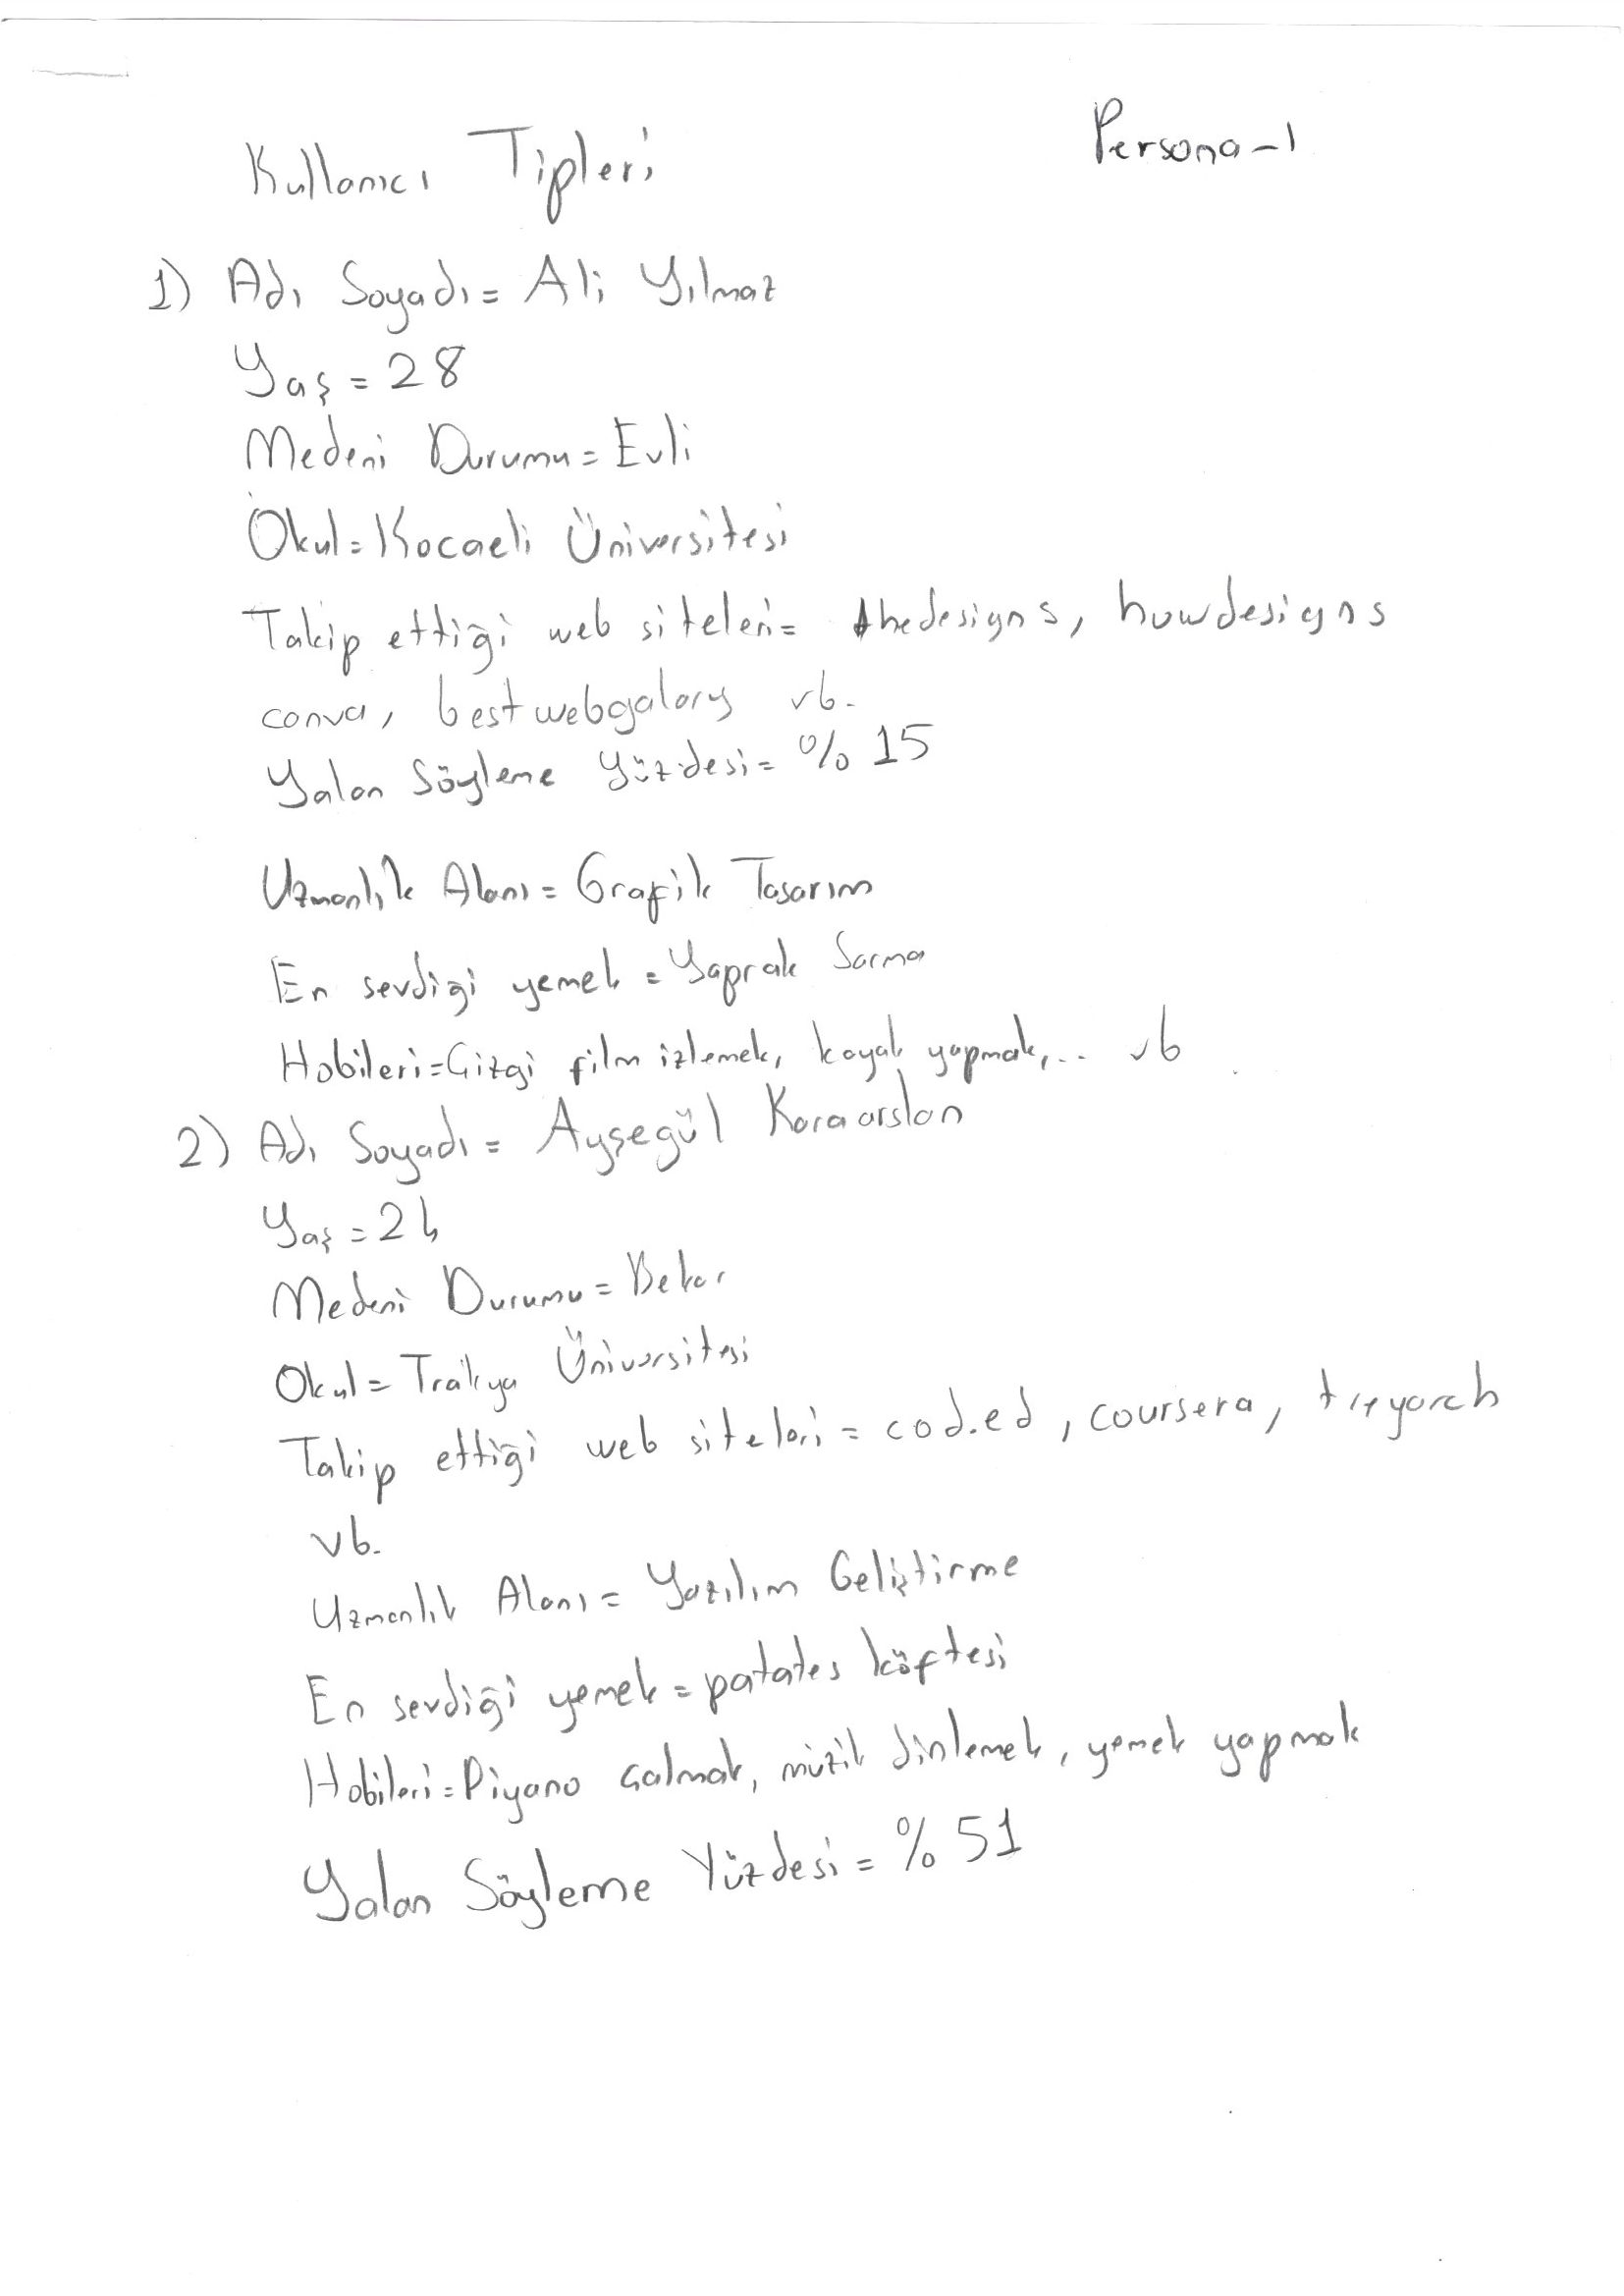 Persona-1
Kullanıcı Tipleri
1) Adı Soyadı = Ali Yılmaz
Yaş = 28
Medeni Durumu = Evli
Okul = Kocaeli Üniversitesi
Takip ettiği web siteleri = thedesigns, howdesigns
canva, bestwebgalory vb.
Yalan Söyleme Yüzdesi = % 15
Uzmanlık Alanı = Grafik Tasarım
En sevdiği yemek = Yaprak Sarma
Hobileri = Çizgi film izlemek, kayak yapmak,... vb
2) Adı Soyadı = Ayşegül Karaarslan
Yaş = 24
Medeni Durumu = Bekar
Okul = Trakya Üniversitesi
Takip ettiği web siteleri = cod.ed, coursera,
vb.
Uzmanlık Alanı = Yazılım Geliştirme
En sevdiği yemek = patates köftesi
Hobileri = Piyano çalmak, müzik dinlemek, yemek yapmak
Yalan Söyleme Yüzdesi = % 51